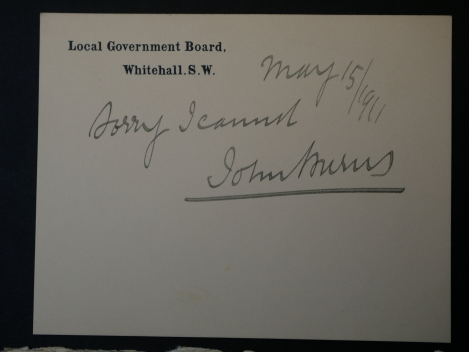 Local Government Board,
Whitehall. S.W.
May 15/1911
Sorry I cannot
John Burns